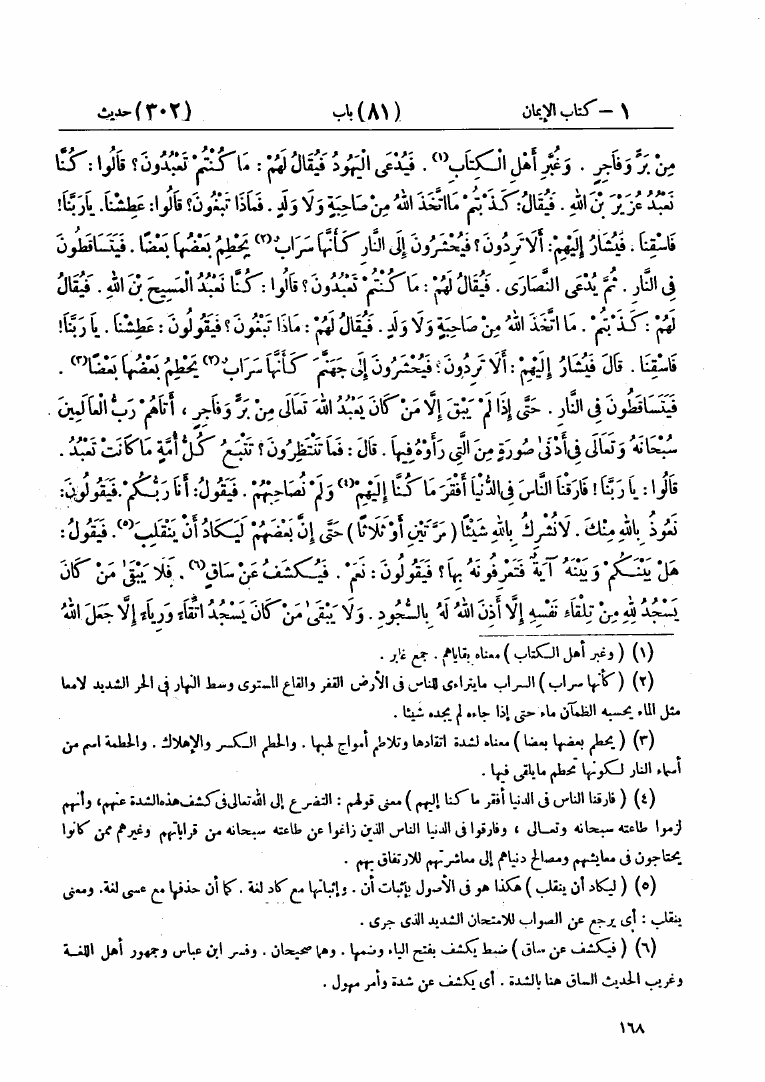 ١ – كتاب الإيمان (٨١) باب (٣٠٢) حديث
مِنْ بَرٍّ وَفَاجِرٍ . وَغُبَّرِ أَهْلِ الْكِتَابِ(١) . فَيُدْعَى الْيَهُودُ فَيُقَالُ لَهُمْ : مَا كُنْتُمْ تَعْبُدُونَ ؟ قَالُوا : كُنَّا
نَعْبُدُ عُزَيْرَ بْنَ اللهِ . فَيُقَالُ : كَذَبْتُمْ مَا اتَّخَذَ اللهُ مِنْ صَاحِبَةٍ وَلَا وَلَدٍ . فَمَاذَا تَبْغُونَ ؟ قَالُوا : عَطِشْنَا . يَا رَبَّنَا !
فَاسْقِنَا . فَيُشَارُ إِلَيْهِمْ : أَلَا تَرِدُونَ ؟ فَيُحْشَرُونَ إِلَى النَّارِ كَأَنَّهَا سَرَابٌ(٢) يَحْطِمُ بَعْضُهَا بَعْضًا . فَيَتَسَاقَطُونَ
فِي النَّارِ . ثُمَّ يُدْعَى النَّصَارَى . فَيُقَالُ لَهُمْ : مَا كُنْتُمْ تَعْبُدُونَ ؟ قَالُوا : كُنَّا نَعْبُدُ الْمَسِيحَ بْنَ اللهِ . فَيُقَالُ
لَهُمْ : كَذَبْتُمْ . مَا اتَّخَذَ اللهُ مِنْ صَاحِبَةٍ وَلَا وَلَدٍ . فَيُقَالُ لَهُمْ : مَاذَا تَبْغُونَ ؟ فَيَقُولُونَ : عَطِشْنَا . يَا رَبَّنَا !
فَاسْقِنَا . قَالَ فَيُشَارُ إِلَيْهِمْ : أَلَا تَرِدُونَ ؟ فَيُحْشَرُونَ إِلَى جَهَنَّمَ كَأَنَّهَا سَرَابٌ(٢) يَحْطِمُ بَعْضُهَا بَعْضًا(٣) .
فَيَتَسَاقَطُونَ فِي النَّارِ . حَتَّى إِذَا لَمْ يَبْقَ إِلَّا مَنْ كَانَ يَعْبُدُ اللهَ تَعَالَى مِنْ بَرٍّ وَفَاجِرٍ ، أَتَاهُمْ رَبُّ الْعَالَمِينَ
سُبْحَانَهُ وَتَعَالَى فِي أَدْنَى صُورَةٍ مِنَ الَّتِي رَأَوْهُ فِيهَا . قَالَ : فَمَا تَنْتَظِرُونَ ؟ تَتْبَعُ كُلُّ أُمَّةٍ مَا كَانَتْ تَعْبُدُ .
قَالُوا : يَا رَبَّنَا ! فَارَقْنَا النَّاسَ فِي الدُّنْيَا أَفْقَرَ مَا كُنَّا إِلَيْهِمْ(٤) وَلَمْ نُصَاحِبْهُمْ . فَيَقُولُ : أَنَا رَبُّكُمْ . فَيَقُولُونَ :
نَعُوذُ بِاللهِ مِنْكَ . لَا نُشْرِكُ بِاللهِ شَيْئًا ( مَرَّتَيْنِ أَوْ ثَلَاثًا ) حَتَّى إِنَّ بَعْضَهُمْ لَيَكَادُ أَنْ يَنْقَلِبَ(٥) . فَيَقُولُ :
هَلْ بَيْنَكُمْ وَبَيْنَهُ آيَةٌ فَتَعْرِفُونَهُ بِهَا ؟ فَيَقُولُونَ : نَعَمْ . فَيُكْشَفُ عَنْ سَاقٍ(٦) . فَلَا يَبْقَى مَنْ كَانَ
يَسْجُدُ لِلهِ مِنْ تِلْقَاءِ نَفْسِهِ إِلَّا أَذِنَ اللهُ لَهُ بِالسُّجُودِ . وَلَا يَبْقَى مَنْ كَانَ يَسْجُدُ اتِّقَاءً وَرِيَاءً إِلَّا جَعَلَ اللهُ
(١) ( وغبر أهل الكتاب ) معناه بقاياهم . جمع غابر .
(٢) ( كأنها سراب ) السراب ما يتراءى للناس فى الأرض القفر والقاع المستوى وسط النهار فى الحر الشديد لامعا
مثل الماء يحسبه الظمآن ماء حتى إذا جاءه لم يجده شيئا .
(٣) ( يحطم بعضها بعضا ) معناه لشدة اتقادها وتلاطم أمواج لهبها . والحطم الكسر والإهلاك . والحطمة اسم من
أسماء النار لكونها تحطم ما يلقى فيها .
(٤) ( فارقنا الناس فى الدنيا أفقر ما كنا إليهم ) معنى قولهم : التضرع إلى الله تعالى فى كشف هذه الشدة عنهم ، وأنهم
لزموا طاعته سبحانه وتعالى ، وفارقوا فى الدنيا الناس الذين زاغوا عن طاعته سبحانه من قراباتهم وغيرهم ممن كانوا
يحتاجون فى معايشهم ومصالح دنياهم إلى معاشرتهم للارتفاق بهم .
(٥) ( ليكاد أن ينقلب ) هكذا هو فى الأصول بإثبات أن . وإثباتها مع كاد لغة . كما أن حذفها مع عسى لغة . ومعنى
ينقلب : أى يرجع عن الصواب للامتحان الشديد الذى جرى .
(٦) ( فيكشف عن ساق ) ضبط يكشف بفتح الياء وضمها . وهما صحيحان . وفسر ابن عباس وجمهور أهل اللغة
وغريب الحديث الساق هنا بالشدة . أى يكشف عن شدة وأمر مهول .
١٦٨